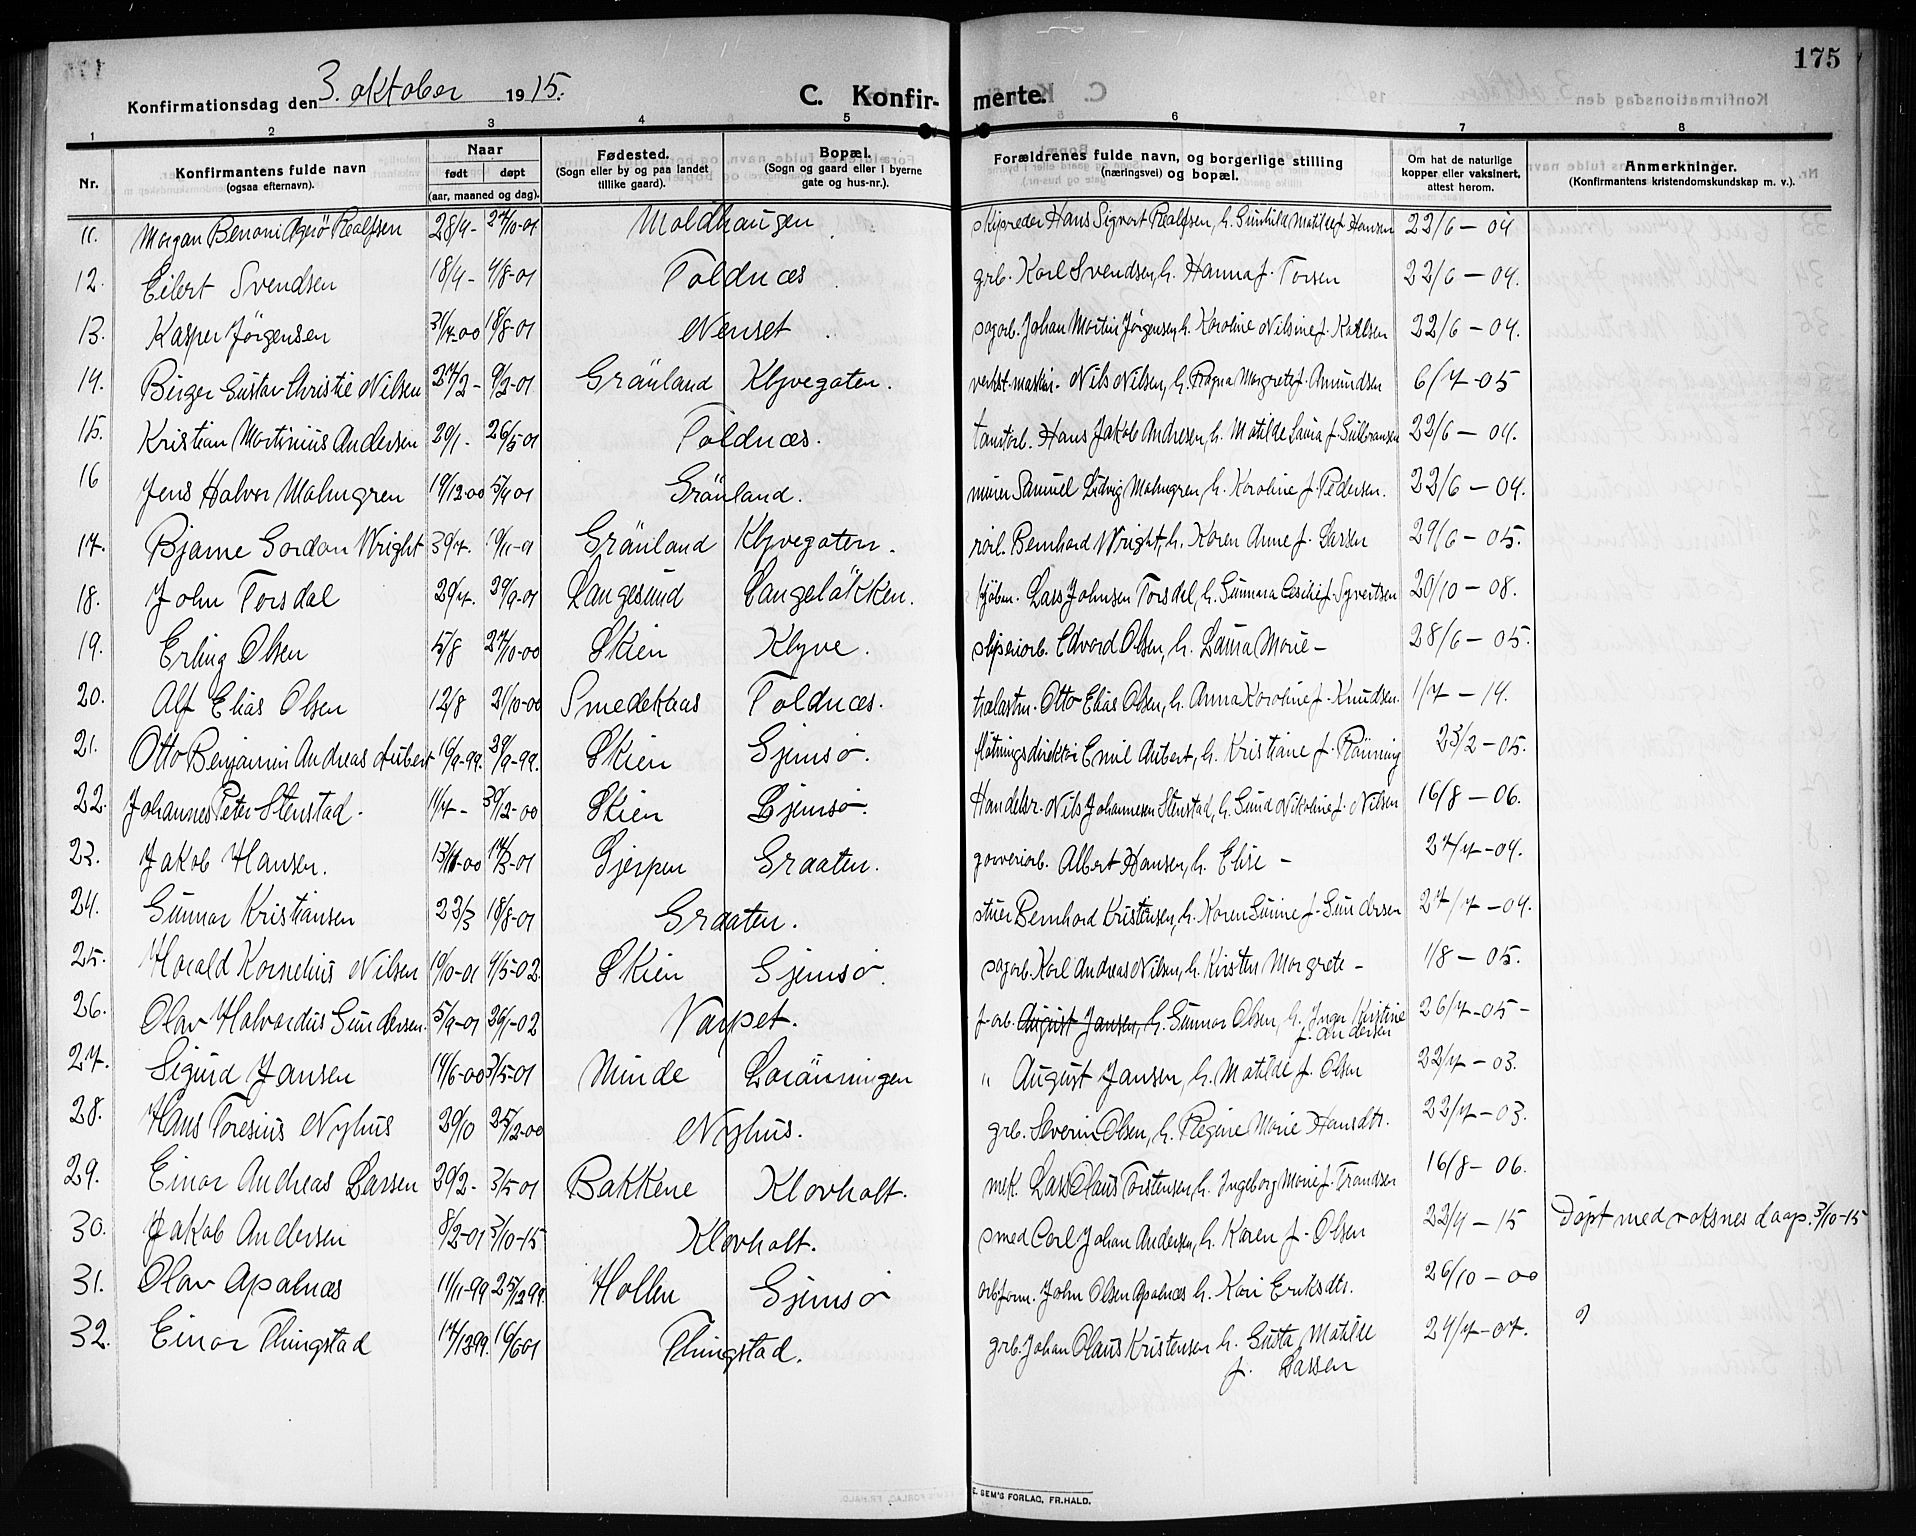 175
Konfirmationsdag den 3. oktober 1915.
C. Konfirmerte.
1 2 3 4 5 6 7 8
Nr. Konfirmantens fulde navn (ogsaa efternavn). Naar født døpt (aar, maaned og dag). Fødested. (Sogn eller by og paa landet tillike gaard). Bopæl. (Sogn og gaard eller i byerne gate og hus-nr.). Forældrenes fulde navn, og borgerlige stilling (næringsvei) og bopæl. Om hat de naturlige kopper eller vaksinert, attest herom. Anmerkninger. (Konfirmantens kristendomskundskap m. v.).
11. Morgan Benoni Agerø Realfsen 28/4- 27/10-01 Moldhaugen skipsreder Hans Sigvart Realfsen, h. Gunhilda Mathilde f. Hansen 22/6 – 04
12. Eilert Svendsen 18/4- 4/8-01 Toldnæs grb. Karl Svendsen, h. Hanna f. Torsen 22/6 – 04.
13. Kasper Jörgensen 31/7-00 18/8-01 Nenset sagarb. Johan Martin Jörgensen, h. Karoline Nilsine f. Karlsen 22/6 – 04.
14. Birger Gustav Christie Nilsen 27/2- 9/2-01 Grönland Klyvegaten. verkst. maskin. Nils Nilsen, h. Ragna Margrete f. Amundsen 6/7 – 05
15. Kristian Martinius Andersen 20/1- 26/5-01 Toldnæs. tomtarb. Hans Jakob Andresen, h. Matilde Laura f. Gulbransen 22/6 – 04.
16 Jens Halvor Malmgren 19/12-00 5/4 01 Grönland. murer Samuel Ludvig Malmgren, h. Karoline f. Pedersen. 22/6 – 04.
17. Bjarne Gordon Wright 30/7. 10/11-01 Grönland Klyvegaten. rörl. Bernhard Wright, h. Karen Anne f. Larsen 29/6 – 05.
18. John Torsdal 20/7. 29/9-01 Langesund Langelökken. kjöbm. Lars Johnsen Torsdal, h. Gunnara Cecilie f. Syvertsen 20/10 – 08.
19. Erling Olsen 5/8 27/10-00 Skien Klyve. sliperiarb. Edvard Olsen, h. Laura Marie – 28/6 – 05.
20. Alf Elias Olsen 12/8 21/10-00 Smedekaas Toldnæs. trælastm. Otto Elias Olsen, h. Anna Karoline f. Knudsen. 1/7 – 14.
21. Otto Benjamin Andreas Aubert 16/9-99. 29/9-99. Skien Gjemsø. fløtningsdirektör Emil Aubert, h. Kristiane f. Rönning 23/2 – 05.
22. Johannes Peter Stenstad. 11/7 - 30/12-00 Skien Gjemsø. Handelsr. Nils Johannesen Stenstad, h. Gund Nikoline f. Nilsen 16/8 – 06.
23. Jakob Hansen. 13/11-00 17/3-01 Gjerpen Graaten. garveriarb. Albert Hansen, h. Elise – 27/7-04.
24. Gunnar Kristiansen 22/3 18/8-01 Graaten. stuer Bernhard Kristensen, h. Karen Gurine f. Gundersen 27/7 – 04.
25. Harald Kornelius Nilsen 10/10-01 4/5-02. Skien Gjemsø. sagarb. Karl Andreas Nilsen, h. Kirsten Margrete – 1/8 – 05.
26. Olav Halvardus Gundersen. 5/9-01 26/1-02 Varpet. f. arb. August Jansen, h. Gunnar Olsen, h. Inger Kristine f. Andersen 26/7-05 –
27. Sigurd Jansen 14/6-00 3/5-01 Minde Lorönningen " August Jansen, h. Matilde f. Olsen 22/7 – 03.
28. Hans Toresius Nyhus 20/10 25/12-00 Nyhus. grb. Severin Olsen, h. Regine Marie Hansdtr. 22/7 – 03.
29. Einar Andreas Larsen 20/2- 3/5 01 Bakkene Klovholt. mek. Lars Olaus Torstensen, h. Ingeborg Marie f. Frandsen 16/8 – 06.
30. Jakob Andersen 8/2-01 3/10-15 Klovholt. smed Carl Johan Andersen, h. Karen f. Olsen 22/4 – 15 Døpt med voksnes daap. 3/10-15
31. Olav Apalnæs 11/11-99 25/12 99. Hollen Gjemsø arbform. John Olsen Apalnæs h. Kari Eriksdtr. 26/10 – 00
32. Einar Thingstad 17/12 99. 16/6 01 Thingstad. grb. Johan Olaus Kristensen h. Gusta Matilde f. Larsen 24/7-07.
E. SEM'S FORLAG, FR.HALD.